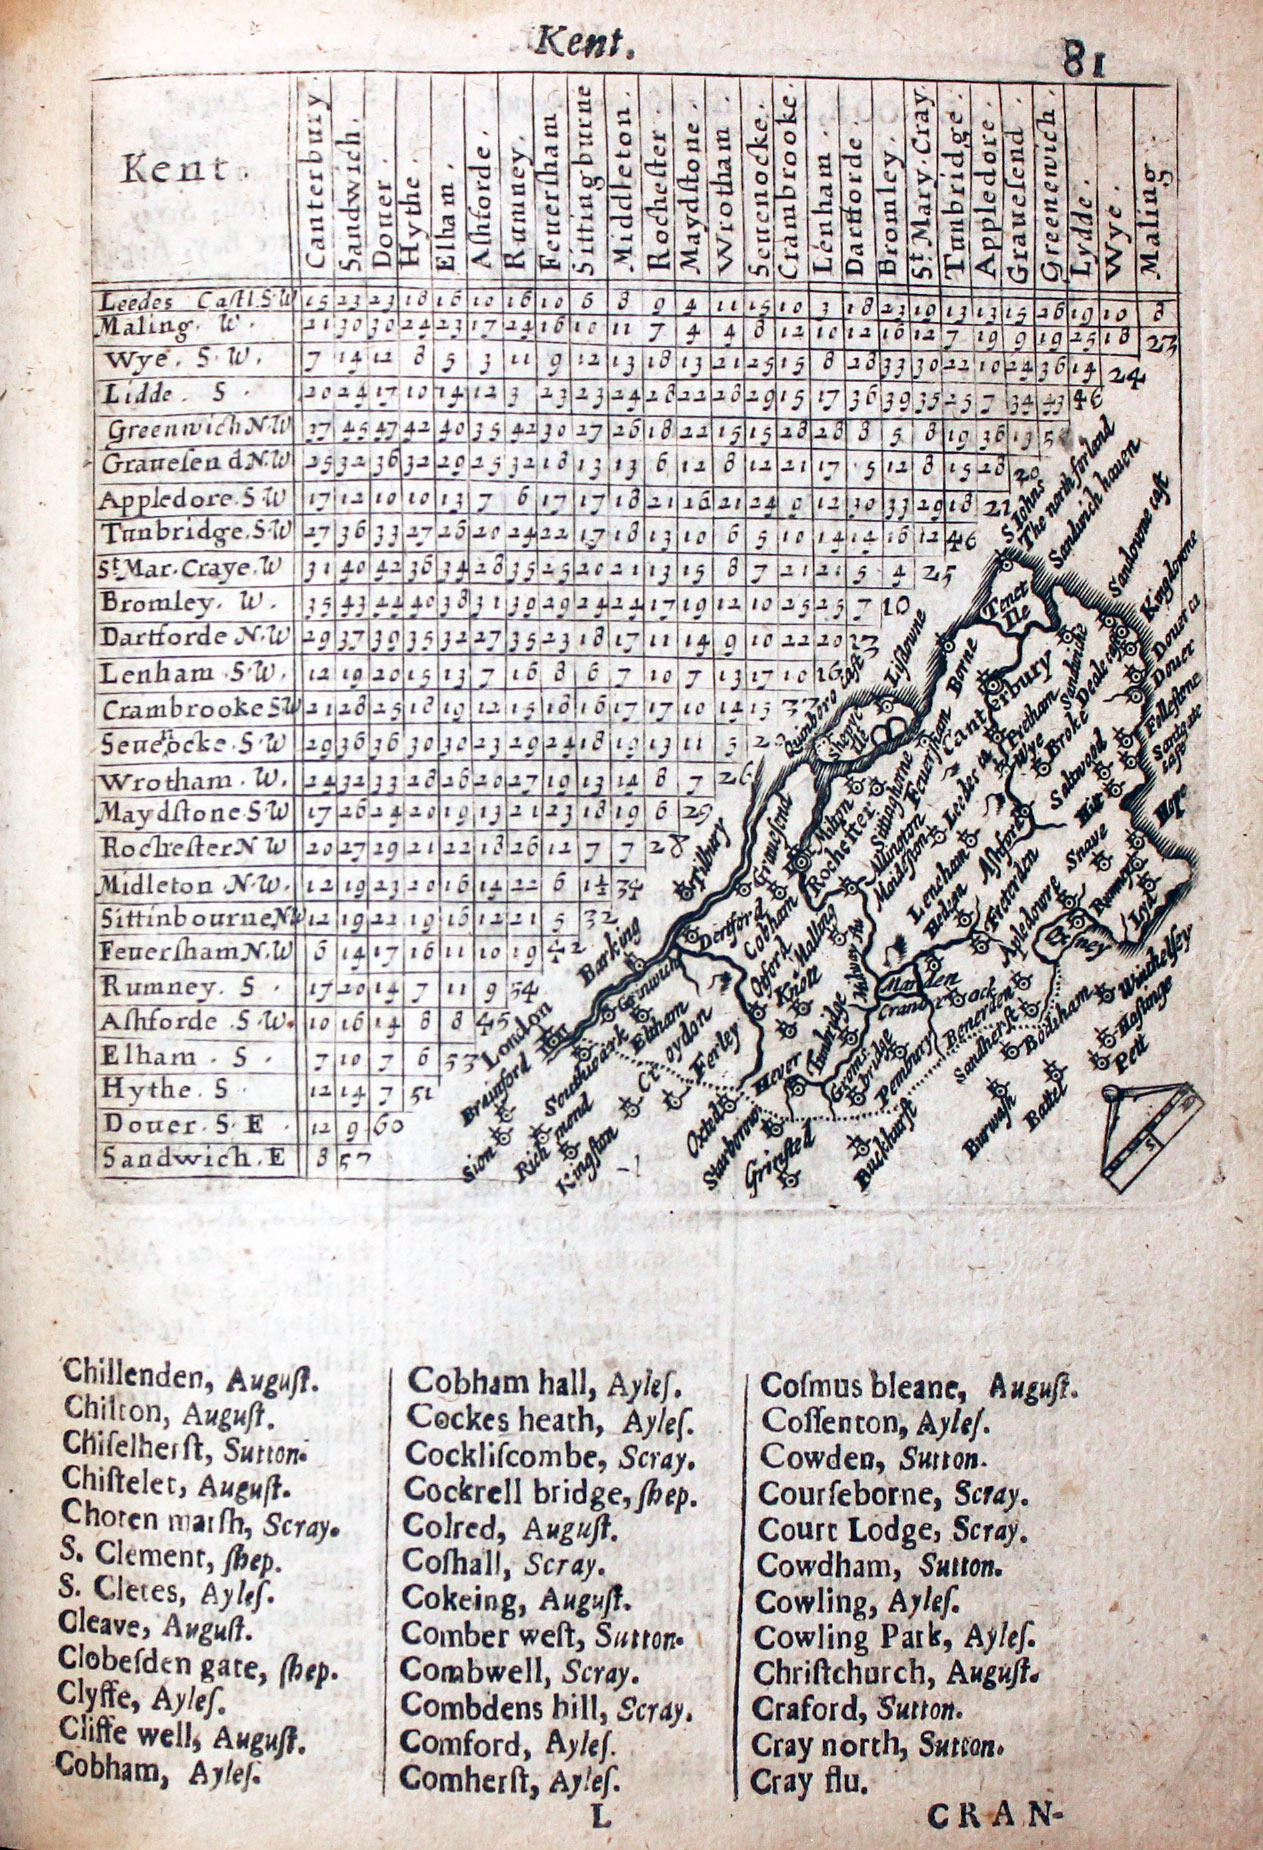 Kent.
81
Kent.
Canterbury.
Sandwich.
Douer.
Hythe.
Elham.
Aſhforde.
Rumney.
Feuerſham
Sittingburne
Middleton.
Rocheſter.
Maydſtone.
Wrotham
Seuenocke.
Crambrooke.
Lenham.
Dartforde.
Bromley.
St. Mary. Cray.
Tunbridge.
Appledore.
Graueſend.
Greenewich.
Lydde.
Wye.
Maling.
Leedes Caſtl. S.W 15 23 23 18 16 10 16 10 6 8 9 4 11 15 10 3 18 23 19 13 13 15 26 19 10 8
Maling. W. 21 30 30 24 23 17 24 16 10 11 7 4 4 8 12 10 12 16 12 7 19 9 19 25 18 23
Wye. S.W. 7 14 12 8 5 3 11 9 12 13 18 13 21 25 15 8 28 33 30 22 10 24 36 14 24
Lidde. S. 20 24 17 10 14 12 3 23 23 24 28 22 28 29 15 17 36 39 35 25 7 34 43 46
Greenwich N.W 37 45 47 42 40 35 42 30 27 26 18 22 15 15 28 28 8 5 8 19 36 13
Graueſend N.W 25 32 36 32 29 25 32 18 13 13 6 12 8 12 21 17 5 12 8 15 28 20
Appledore. S.W 17 12 10 10 13 7 6 17 17 18 21 16 21 24 9 12 30 33 29 18 22
Tunbridge. S.W 27 36 33 27 26 20 24 22 17 18 13 10 6 5 10 14 14 16 12 46
St. Mar. Craye. W 31 40 42 36 34 28 35 25 20 21 13 15 8 7 21 21 5 4 25
Bromley. W. 35 43 44 40 38 31 39 29 24 24 17 19 12 10 25 25 7 10
Dartforde N.W 29 37 39 35 32 27 35 23 18 17 11 14 9 10 22 20
Lenham. S.W. 12 19 20 15 13 7 16 8 6 7 10 7 13 17 10 16
Crambrooke SW 21 28 25 18 19 12 15 18 16 17 17 10 14 13
Seuenocke. S.W 29 36 36 30 30 23 29 24 18 19 13 11 5
Wrotham. W. 24 32 33 28 26 20 27 19 13 14 8 7 26
Maydſtone. S.W 17 26 24 20 19 13 21 23 18 19 6 29
Rocheſter N W 20 27 29 21 22 18 26 12 7 7 28
Midleton N.W. 12 19 23 20 16 14 22 6 1½ 34
Sittinbourne, NW 12 19 22 19 16 12 21 5 32
Feuerſham N.W 6 14 17 16 11 10 19 42
Rumney. S. 17 20 14 7 11 9 54
Aſhforde. S.W. 10 16 14 8 8 45
Elham. S. 7 10 7 6 53
Hythe. S 12 14 7 51
Douer. S.E. 12 9 60
Sandwich. E 8 57
S Iohns
The north forland
Sandwich hauen
Sandowne caſt
Kingsdowne
Douer ca
Douer
Folleſtone
Sandgate caſtle
Hope
Tenet Ile
Sandwiche
Deale caſt
Canterbury
Borne
Quinboro caſt
Sheppye Ile
Feuerſham
Wye
Broke
Saltwood
Hitt
Leedes ca
Sittinghorne
Milton
Rocheſter
Allington
Maidſton
Graueſend
Tilbury
Dertford
Cobham
Otford
Malling
Knoll
Lencham
Aſhford
Fleterden
Apledowre
Snave
Rumney
Lyd
Oxney
Winchelſey
Haſtinge
Pett
Bodiham
Benerden
Sandherſt
Marden
Cranebrock
Barking
Grinwich
London
Southwark
Eltham
Croydon
Ferley
Hever
Tunbridge
Grombridge
Pembury
Brainford
Sion
Richmond
Kingſtun
Oxted
Starborow
Grinſted
Buckhurſt
Burwaſh
Battel
5
10
Chillenden, Auguſt.
Chilton, Auguſt.
Chiſelherſt, Sutton.
Chiſtelet, Auguſt.
Choren marſh, Scray.
S. Clement, ſhep.
S. Cletes, Ayleſ.
Cleave, Auguſt.
Clobeſden gate, ſhep.
Clyffe, Ayleſ.
Cliffe well, Auguſt.
Cobham, Ayleſ.
Cobham hall, Ayleſ.
Cockes heath, Ayleſ.
Cockliſcombe, Scray.
Cockrell bridge, ſhep.
Colred, Auguſt.
Coſhall, Scray.
Cokeing, Auguſt.
Comber weſt, Sutton.
Combwell, Scray.
Combdens hill, Scray.
Comford, Ayleſ.
Comherſt, Ayleſ.
Coſmus bleane, Auguſt.
Coſſenton, Ayleſ.
Cowden, Sutton.
Courſeborne, Scray.
Court Lodge, Scray.
Cowdham, Sutton.
Cowling, Ayleſ.
Cowling Park, Ayleſ.
Chriſtchurch, Auguſt.
Craford, Sutton.
Cray north, Sutton.
Cray flu.
L
CRAN-